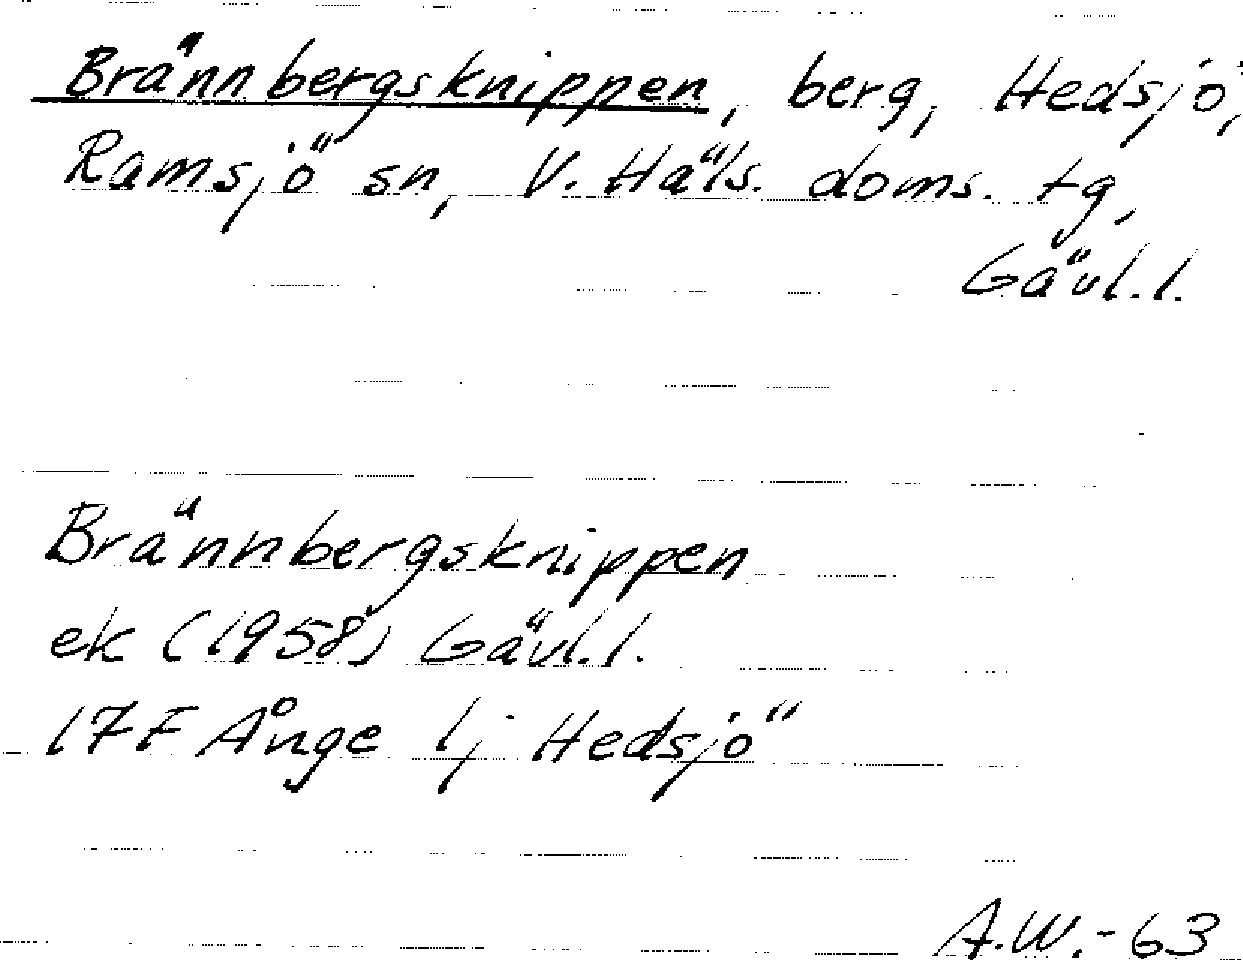 Brännbergsknippen, berg, Hedsjö,
Ramsjö sn, V. Häls. doms. tg,
Gävl.l.
Brännbergsknippen
ek (1958) Gävl.l.
17F Ånge 1j Hedsjö
A.W.-63